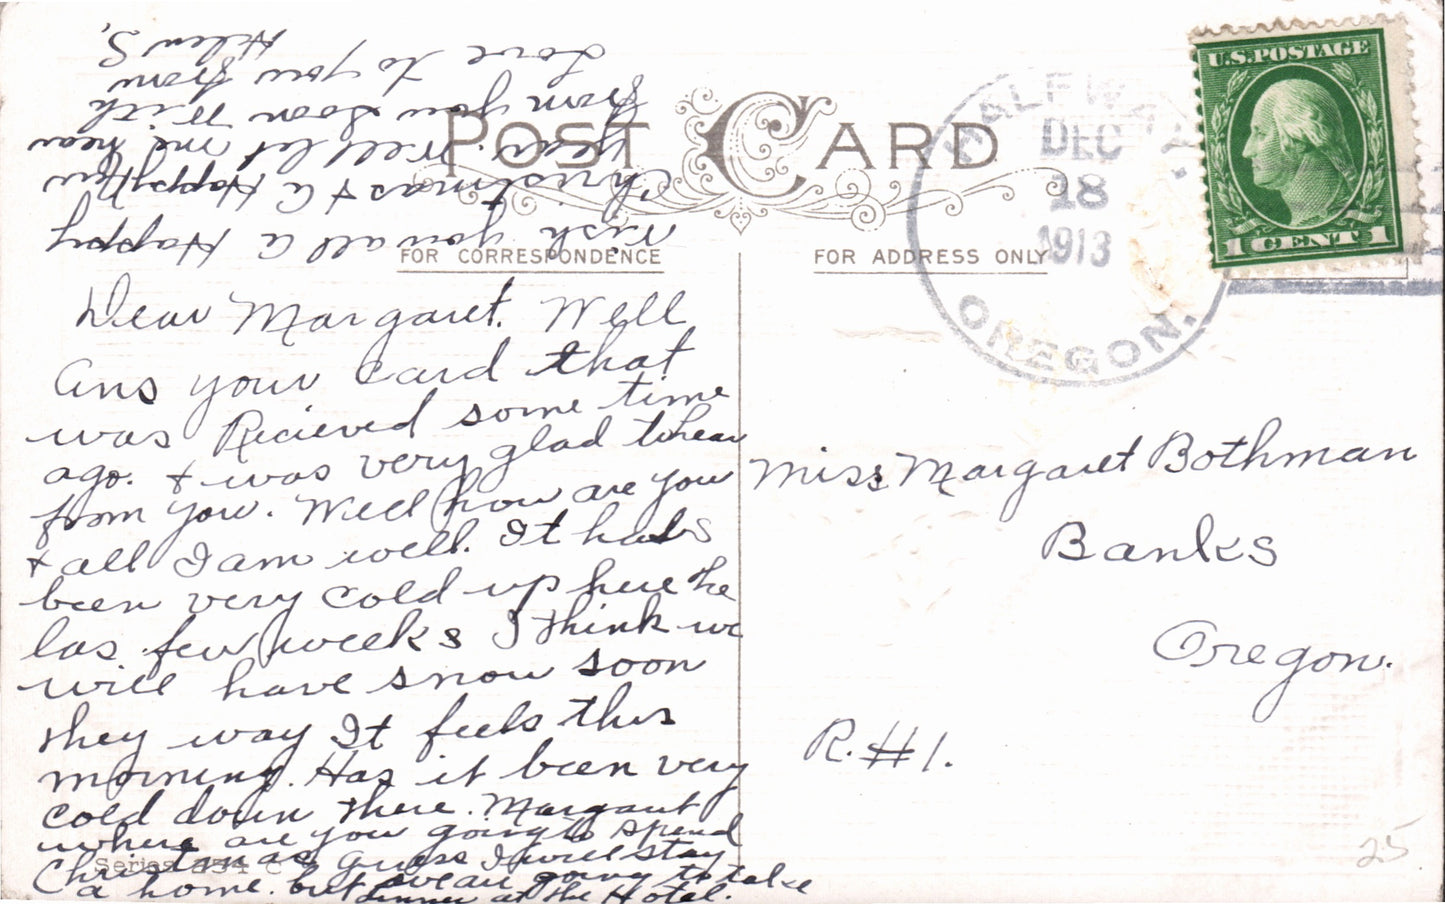 POST CARD
FOR CORRESPONDENCE
FOR ADDRESS ONLY
U.S. POSTAGE
1 CENT 1
HALFWAY
DEC
18
1913
OREGON.
Dear Margaret. Well
ans your card that
was Recieved some time
ago. & was very glad to hear
from you. Well how are you
& all I am well. It has
been very cold up here the
las few weeks I think we
will have snow soon
they way It feels this
morning. Has it been very
cold down there. Margaret
where are you going to spend
Christmas guess I will stay
a home. but we are going to take
dinner at the Hotel.
Series C
Wish you all a Happy
Christmas & a Happy New
year. Well let me hear
from you soon With
Love to you from
Helen S,
Miss Margaret Bothman
Banks
Oregon.
R. #1.
25